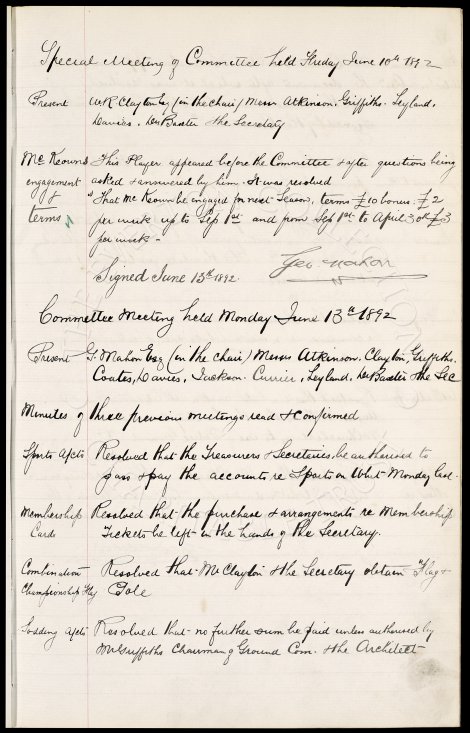 Special Meeting of Committee held Friday June 10th 1892
Present W.R. Clayton Esq (in the chair) Messrs Atkinson. Griffiths. Leyland.
Davies. Dr Baxter & the Secretary
McKeowns This Player appeared before the Committee & after questions being
engagement asked & answered by him. It was resolved
& "That McKeown be engaged for next Season, terms £10 bonus. £2
terms per week up to Sep 1st and from Sep 1st to April 30th £3
per week -
Signed June 13th 1892. Geo. Mahon
Committee Meeting held Monday June 13th 1892
Present G. Mahon Esq (in the chair) Messrs Atkinson. Clayton. Griffiths.
Coates, Davies, Jackson. Currier, Leyland, Dr Baxter & the Sec
Minutes of three previous meetings read & confirmed
Sports A/cts Resolved that the Treasurers & Secretaries, be authorised to
pass & pay the accounts re Sports on Whit-Monday last.
Membership Resolved that the purchase & arrangements re Membership
Cards Tickets be left in the hands of the Secretary.
Combination Resolved that Mr Clayton & the Secretary obtain Flag &
Championship Flag Pole
Sodding A/cts Resolved that no further sum be paid unless authorised by
Mr Griffiths Chairman of Ground Com. & the Architect